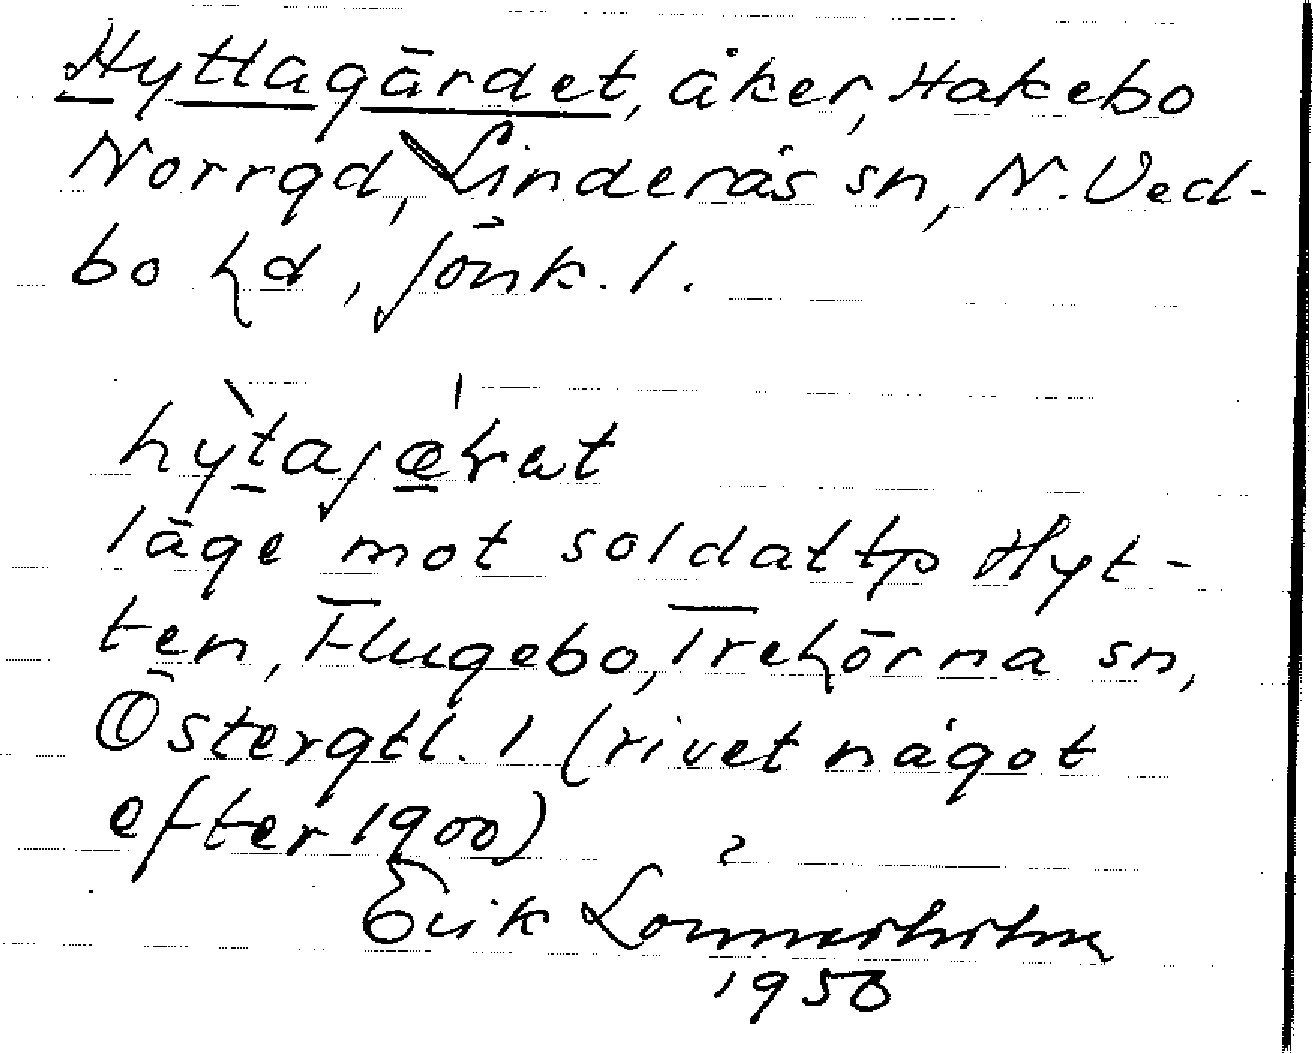 Hyttagärdet, åker, Hakebo
Norrgd, Linderås sn, N. Ved-
bo hd, Jönk. l.
hỳtajǽrat
läge mot soldattp Hyt-
ten, Flugebo, Trehörna sn,
Östergtl. l (rivet något
efter 1900)
Erik Lönnerholm
1958